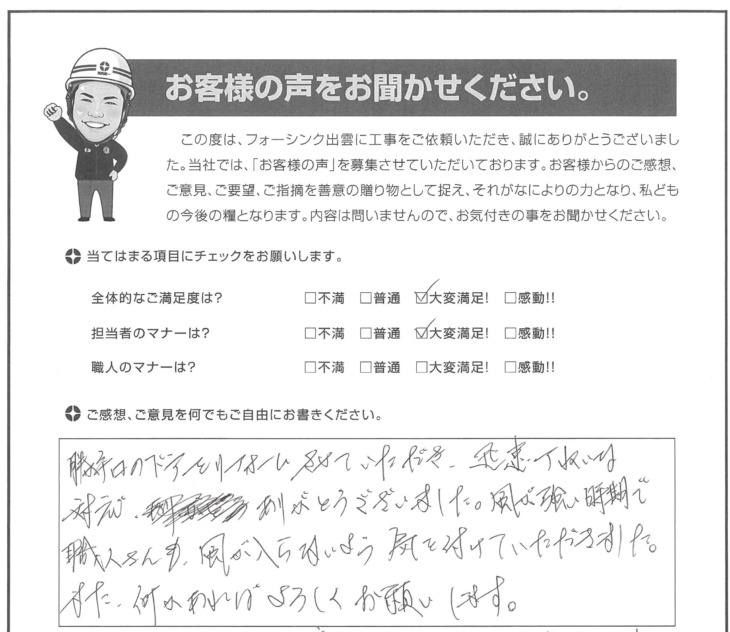 お客様の声をお聞かせください。
この度は、フォーシンク出雲に工事をご依頼いただき、誠にありがとうございまし
た。当社では、「お客様の声」を募集させていただいております。お客様からのご感想、
ご意見、ご要望、ご指摘を善意の贈り物として捉え、それがなによりの力となり、私ども
の今後の糧となります。内容は問いませんので、お気付きの事をお聞かせください。
当てはまる項目にチェックをお願いします。
全体的なご満足度は? □不満 □普通 ☑大変満足! □感動!!
担当者のマナーは? □不満 □普通 ☑大変満足! □感動!!
職人のマナーは? □不満 □普通 □大変満足! □感動!!
ご感想、ご意見を何でもご自由にお書きください。
勝手口のドアをリフォームさせていただき、迅速丁ねいな
対応、ありがとうございました。風が強い時期で
職人さんも、風が入らないよう気を付けていただきました。
また、何かあればよろしくお願いします。